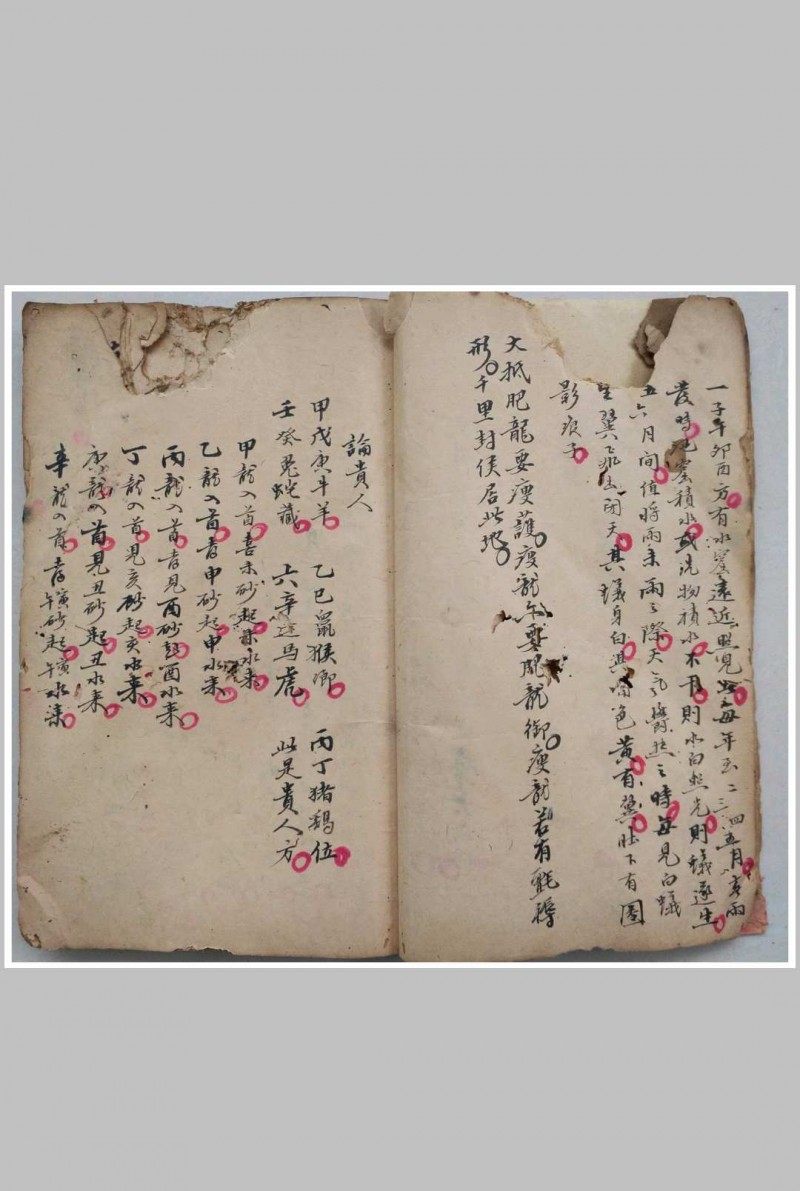 一子午卯酉方有水窟遠近照見如每年至二三四五月多雨
發時窟積水或洗物積水不用則水白照光則蟻逐生
五六月間值將雨未雨之際天氣蒸之時每見白蟻
生翼飛出閉天其蟻身白其色黃有翼貼下有圓
影痕子
大抵肥龍要瘦護瘦龍尔要肥龍御瘦龍若有氈褥
形千里封侯居此地
論貴人
甲戊庚牛羊 乙巳鼠猴鄉 丙丁猪鷄位
壬癸兎蛇藏 六辛逢馬虎 此是貴人方
甲龍入首喜未砂起未水来
乙龍入首喜申砂起申水来
丙龍入首喜見酉砂起酉水来
丁龍入首見亥砂起亥水来
庚龍入首見丑砂起丑水来
辛龍入首喜寅午砂起寅午水来